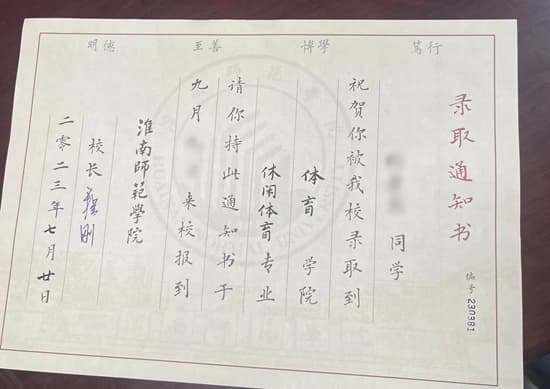 明德 至善 博學 篤行
录取通知书
编号 230381
同学
祝賀你被我校录取到
体育 学院
休闲体育专业
请你持此通知书于
九月 来校报到
淮南師範學院
校长
二零二三年七月廿日